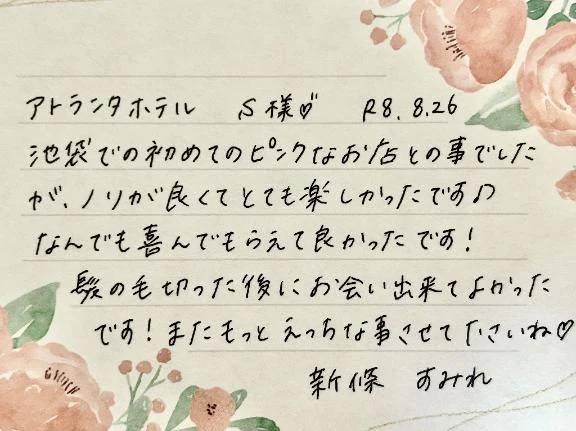 アトランタホテル S様♡ R8.8.26
池袋での初めてのピンクなお店との事でした
が、ノリが良くてとても楽しかったです♪
なんでも喜んでもらえて良かったです!
髪の毛切った後にお会い出来てよかった
です!またもっとえっちな事させてくださいね♡
新條 すみれ